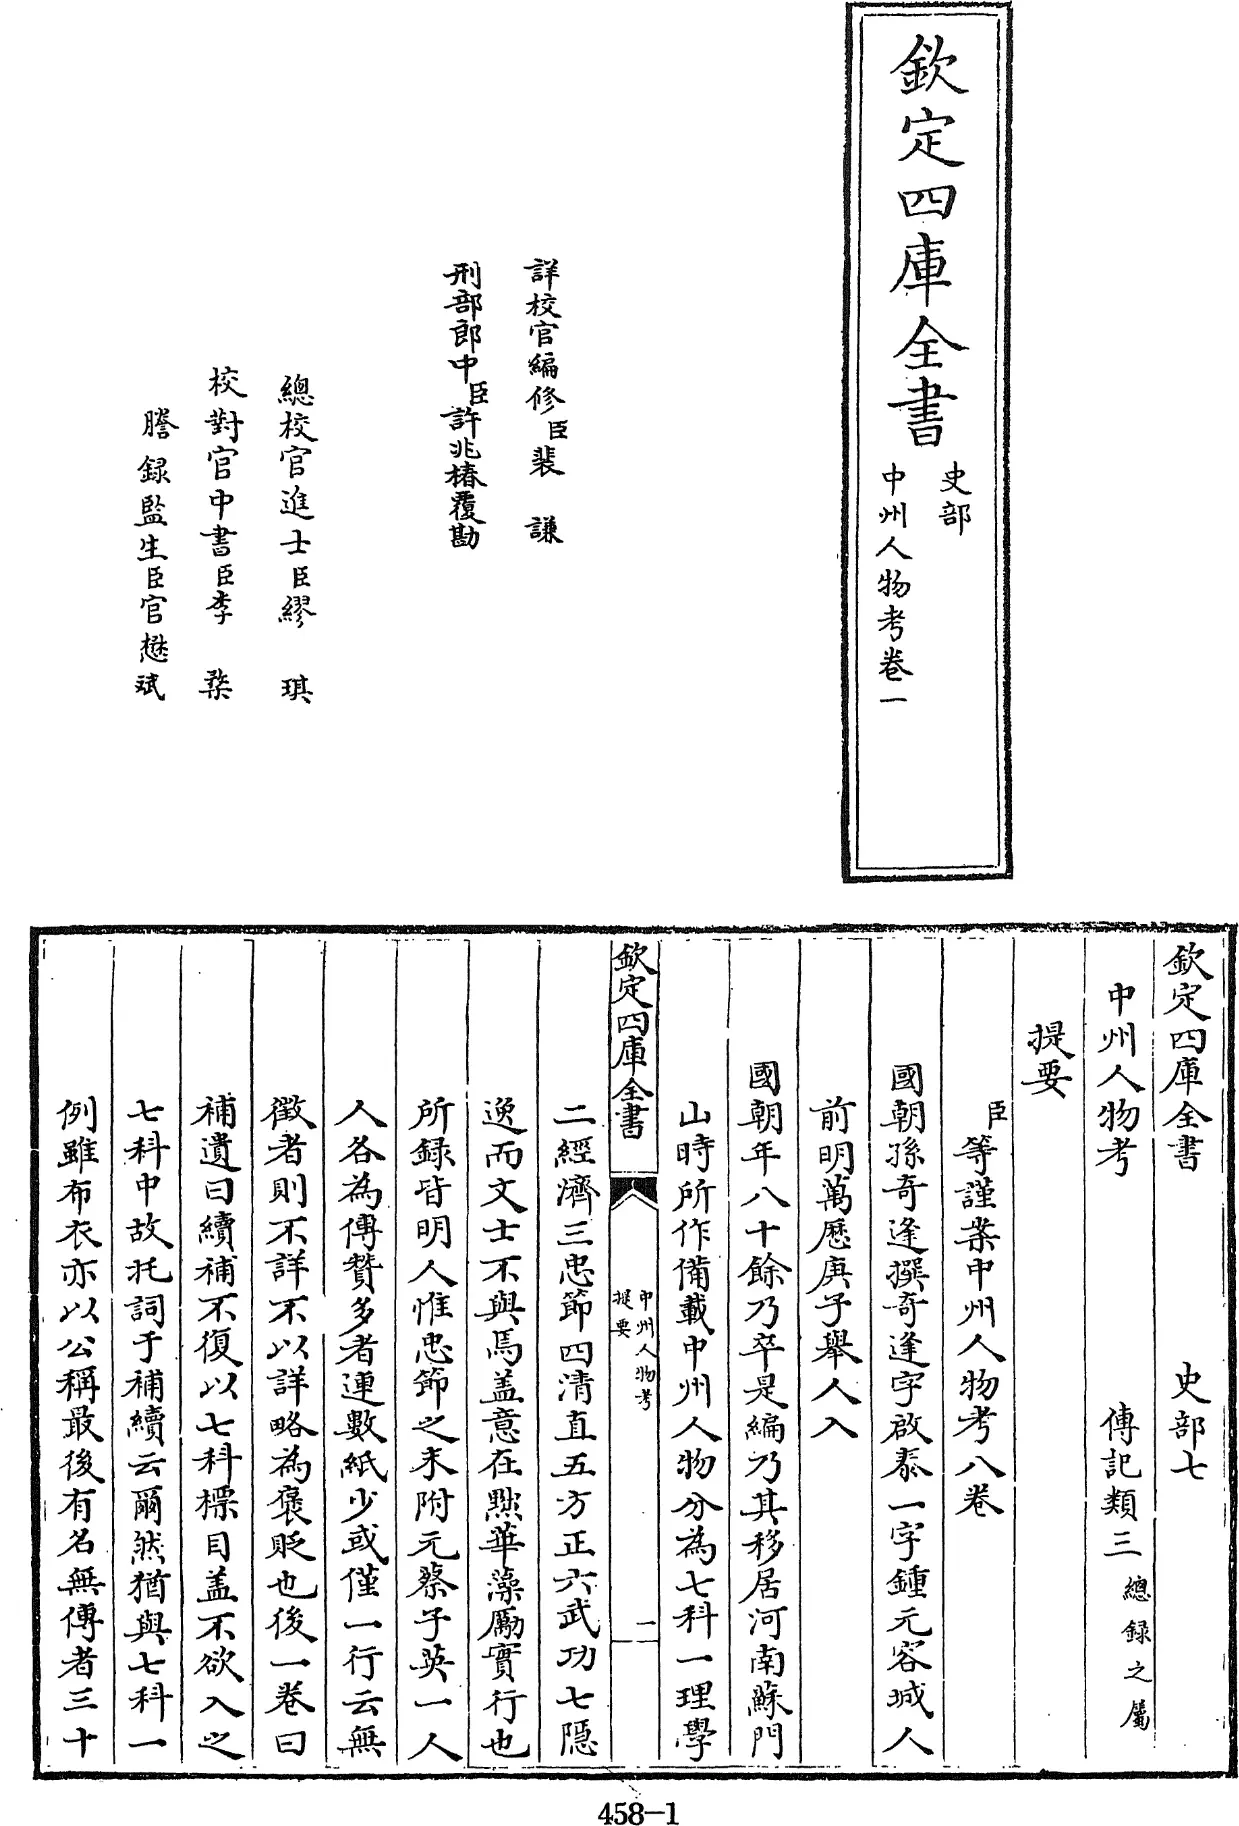 欽定四庫全書
史部
中州人物考卷一
詳校官編修臣裴謙
刑部郎中臣許兆椿覆勘
總校官進士臣繆琪
校對官中書臣李棨
謄錄監生臣官懋斌
欽定四庫全書 史部七
中州人物考 傳記類三總錄之屬
提要
臣等謹案中州人物考八卷
國朝孫奇逢撰奇逢字啟泰一字鍾元容城人
前明萬歷庚子舉人入
國朝年八十餘乃卒是編乃其移居河南蘇門
山時所作備載中州人物分為七科一理學
欽定四庫全書
中州人物考
提要
一
二經濟三忠節四清直五方正六武功七隱
逸而文士不與焉盖意在黜華藻勵實行也
所錄皆明人惟忠節之末附元蔡子英一人
人各為傳贊多者連數紙少或僅一行云無
徵者則不詳不以詳略為褒貶也後一卷曰
補遺曰續補不復以七科標目盖不欲入之
七科中故托詞于補續云爾然猶與七科一
例雖布衣亦以公稱最後有名無傳者三十
458-1